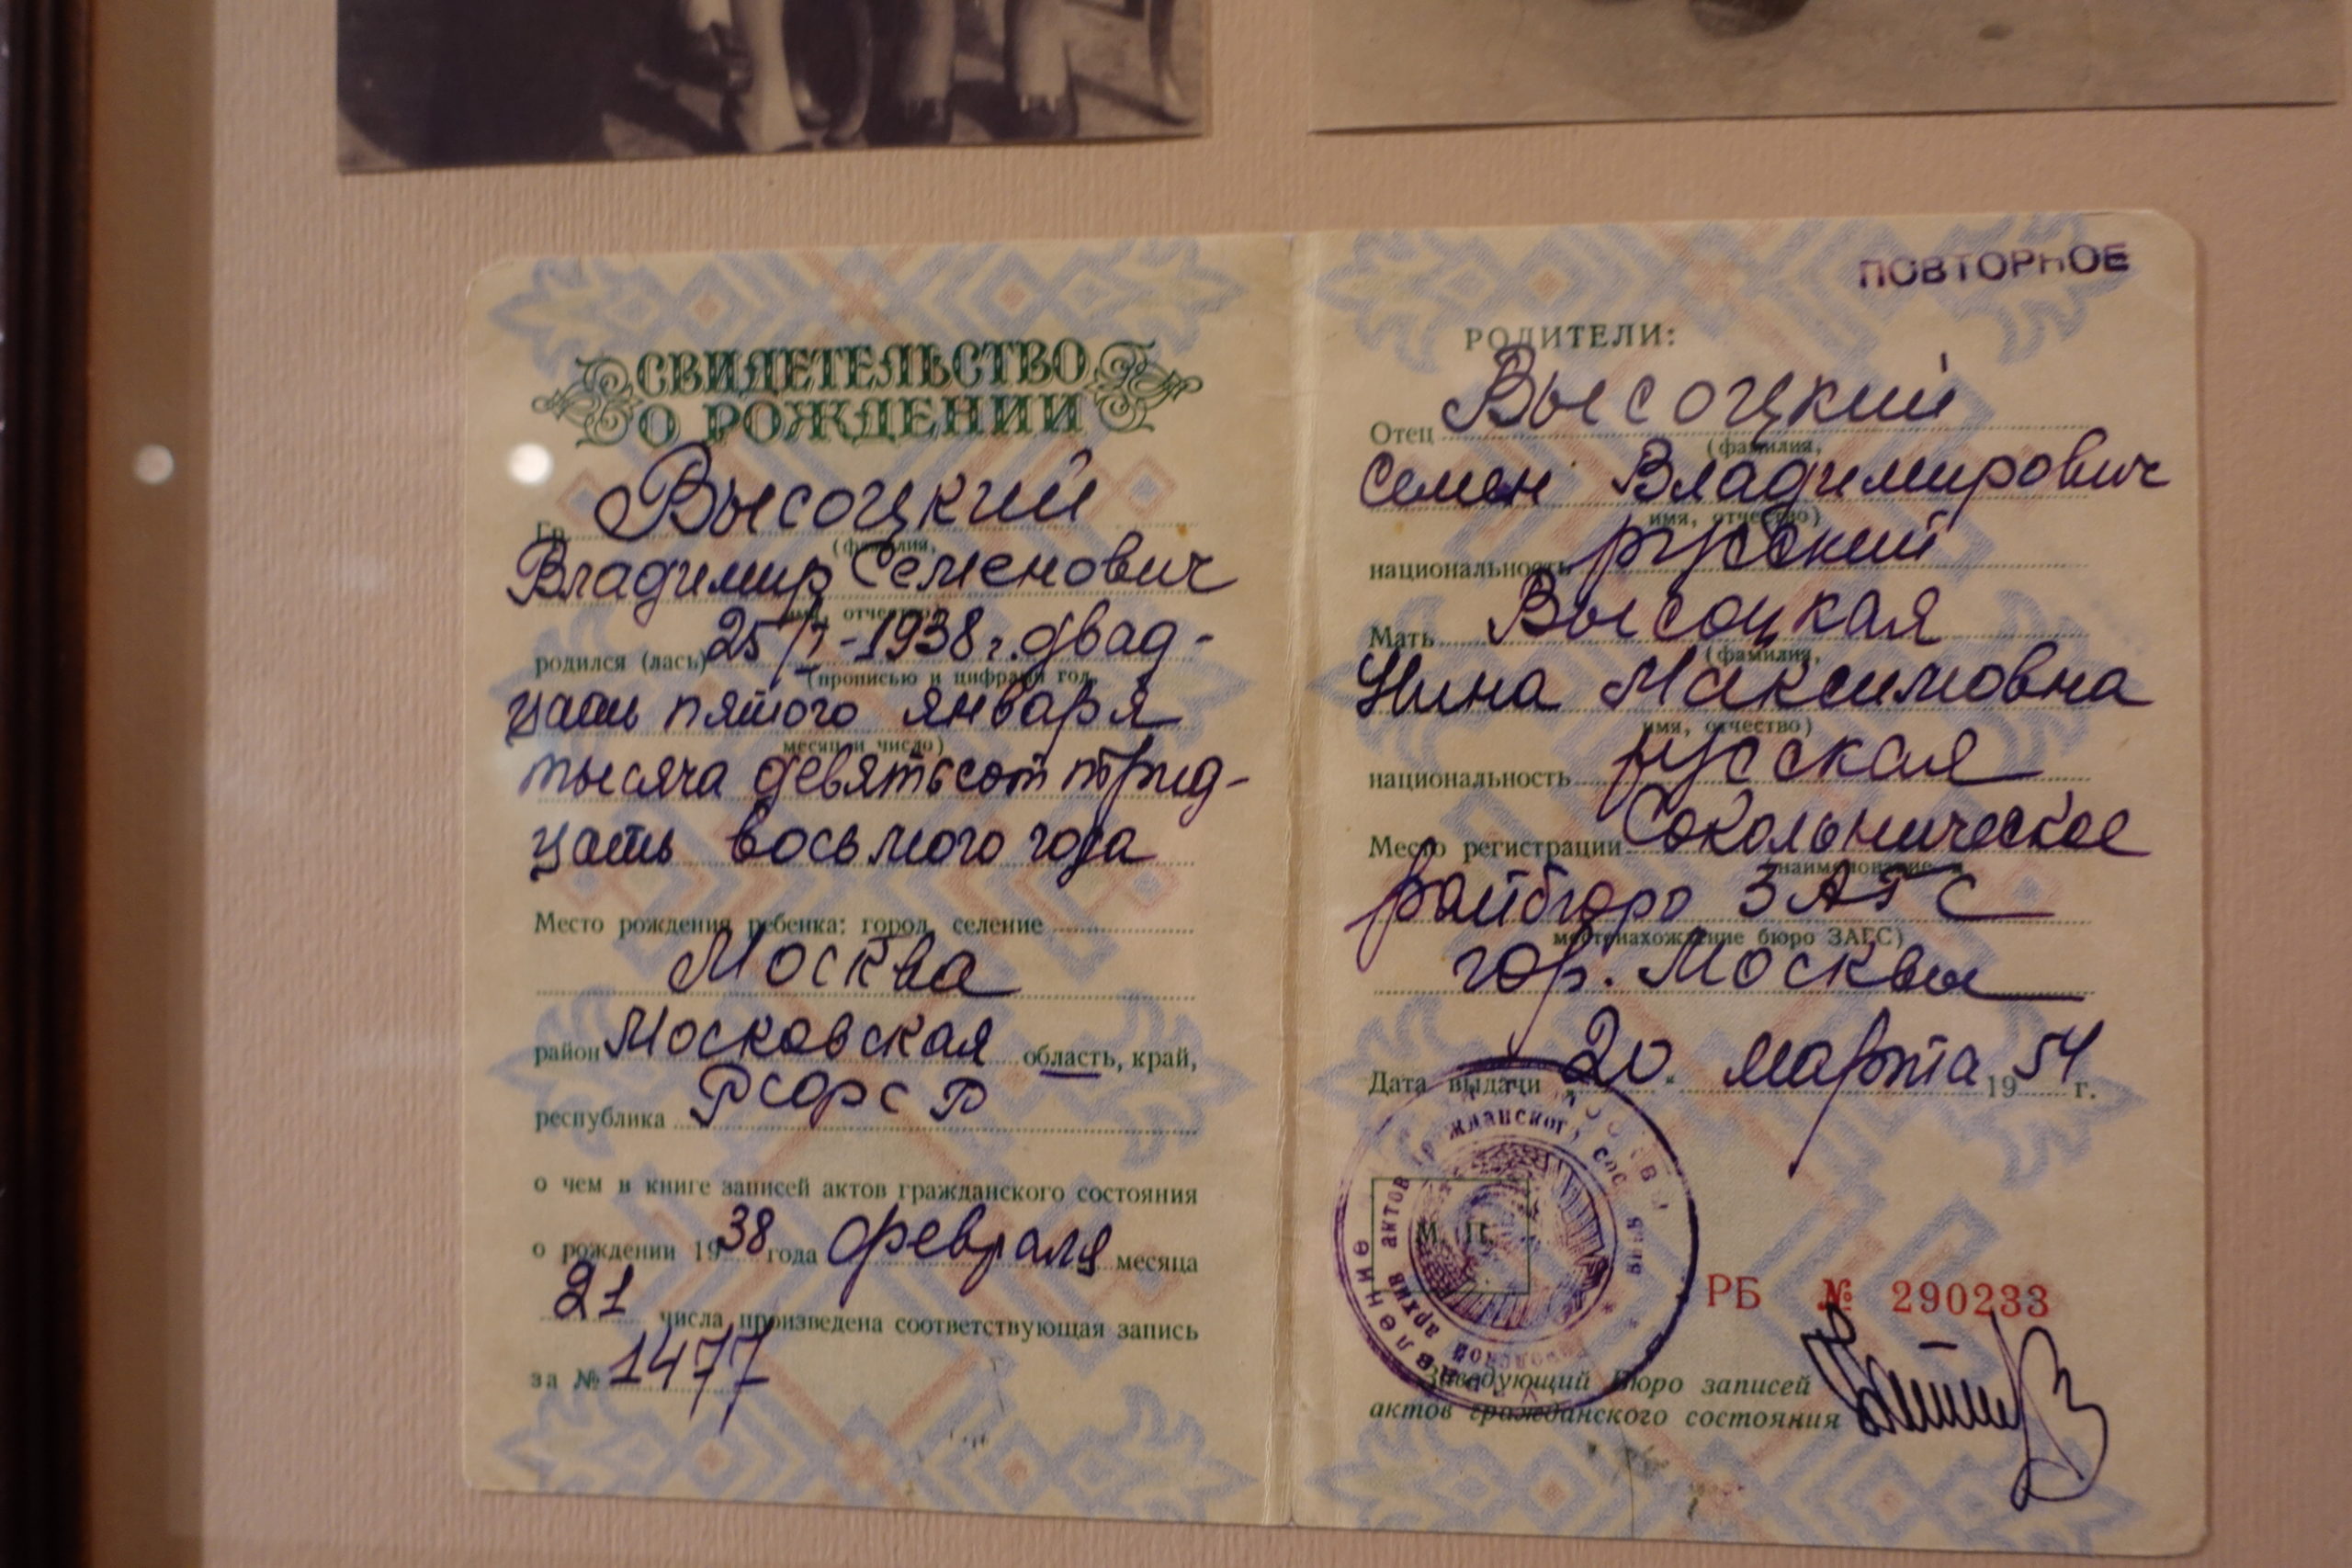 СВИДЕТЕЛЬСТВО
О РОЖДЕНИИ
Гр. Высоцкий
(фамилия,
Владимир Семенович
имя, отчество)
родился (лась) 25/I-1938 г. двад-
(прописью и цифрами год,
цать пятого января
месяц и число)
тысяча девятьсот трид-
цать восьмого года
Место рождения ребенка: город, селение
Москва
район Московская область, край,
республика РСФСР
о чем в книге записей актов гражданского состояния
о рождении 1938 года февраля месяца
21 числа произведена соответствующая запись
за № 1477
ПОВТОРНОЕ
РОДИТЕЛИ:
Отец Высоцкий
(фамилия,
Семен Владимирович
имя, отчество)
национальность русский
Мать Высоцкая
(фамилия,
Нина Максимовна
имя, отчество)
национальность русская
Место регистрации Сокольническое
(наименование и
райбюро ЗАГС
местонахождение бюро ЗАГС)
гор. Москвы
Дата выдачи „20“ марта 1954 г.
актов гражданског
архив
М. П.
РБ № 290233
Заведующий бюро записей
актов гражданского состояния